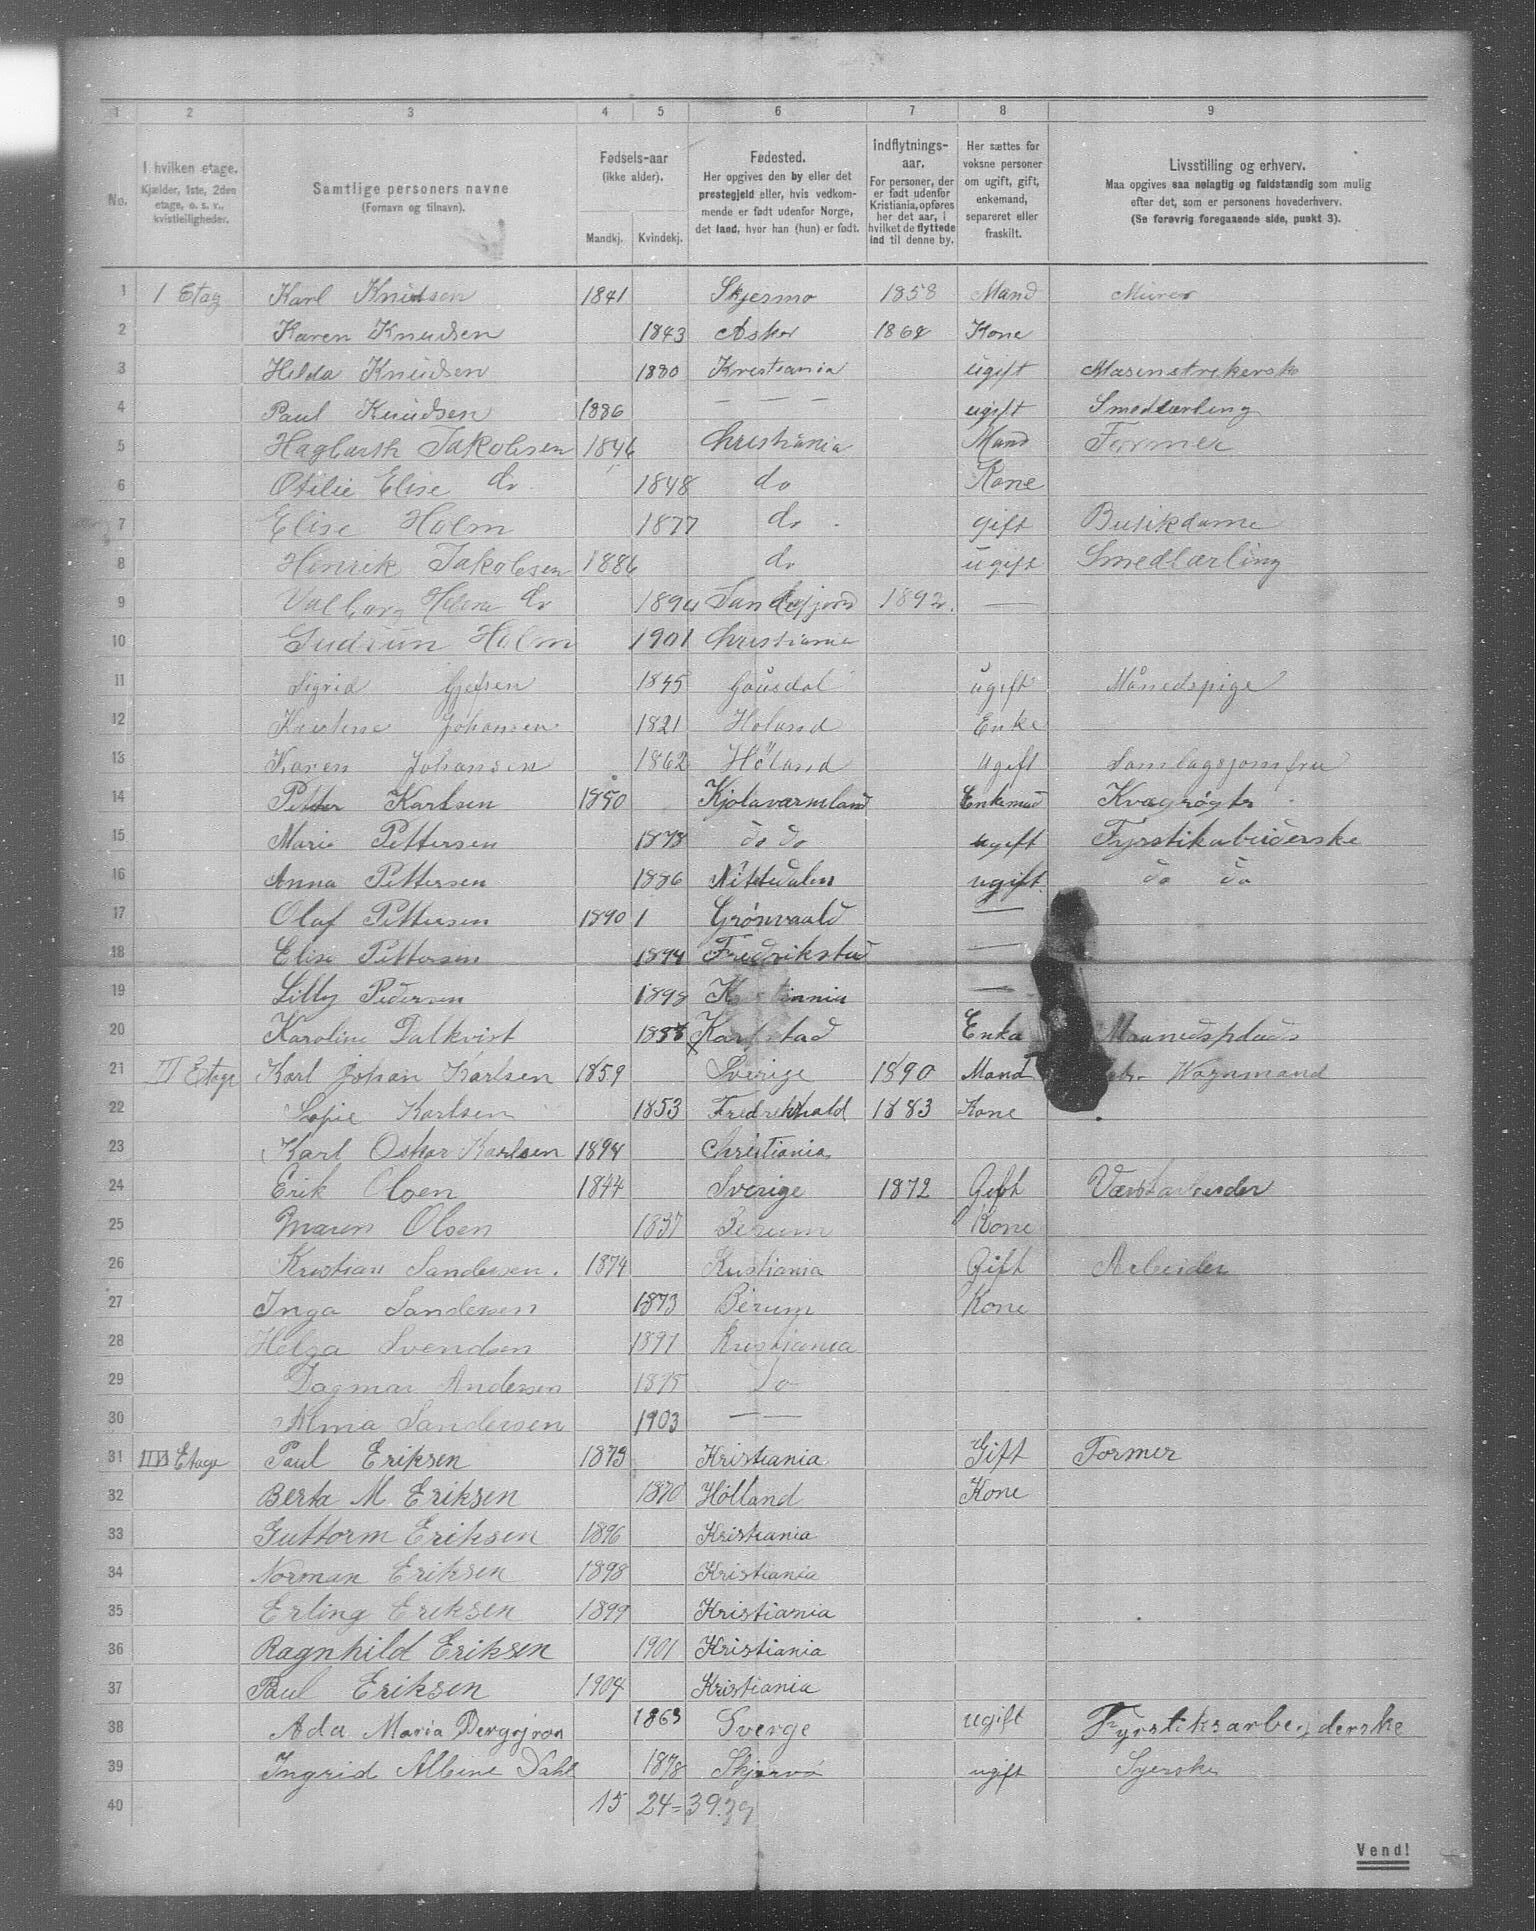 1 2 3 4 5 6 7 8 9
No. I hvilken etage. Kjælder, 1ste, 2den etage, o. s. v., kvistleiligheder. Samtlige personers navne (Fornavn og tilnavn). Fødsels-aar (ikke alder). Mandkj. Kvindekj. Fødested. Her opgives den by eller det prestegjeld eller, hvis vedkommende er født udenfor Norge, det land, hvor han (hun) er født. Indflytnings-aar. For personer, der er født udenfor Kristiania, opføres her det aar, i hvilket de flyttede ind til denne by. Her sættes for voksne personer om ugift, gift, enkemand, separeret eller fraskilt. Livsstilling og erhverv. Maa opgives saa nøiagtig og fuldstændig som mulig efter det, som er personens hovederhverv. (Se forøvrig foregaaende side, punkt 3).
1 I Etag Karl Knudsen 1841 Skjesmo 1858 Mand Murer
2 Karen Knudsen 1843 Asker 1862 Kone
3 Hilda Knudsen 1880 Kristiania ugift Masinstrikersk
4 Paul Knudsen 1886 — — — ugift Smedlærling
5 Hagbarth Jakobsen 1846 Christiania Mand Former
6 Otilie Elise do 1848 do Kone
7 Elise Holm 1877 do gift Butikdame
8 Henrik Jakobsen 1886 do ugift Smedlærling
9 Valborg Helene do 1894 Sandefjord 1892. —
10 Gudrun Holm 1901 Christiania
11 Sigrid 1845 Gausdal ugift Månedspige
12 Kristine Johansen 1821 Holand Enke
13 Karen Johansen 1862 Høland Ugift Samlagsjomfru
14 Petter Karlsen 1850 Kjolavarmland Enkemad Kvægrøgtr
15 Marie Pettersen 1878 do do ugift Fyrstikabeiderske
16 Anna Pettersen 1886 Nittedalen ugift do do
17 Olaf Pettersen 1890 1 Grönvaald —
18 Elise Pettersen 1894 Fredrikstad —
19 Lilly Pedersen 1898 —
20 Karoline Dalkvist Karlstad Enka Maanedsplads
21 II Etage Karl Johan Karlsen 1859 Sverige 1890 Mand Wognmand
22 Sofie Karlsen 1853 Fredrikhald 1883 Kone
23 Karl Oskar Karlsen 1894 Christiania
24 Erik Olsen 1844 Sverige 1872 Gift
25 Maren Olsen 1837 Berum Kone
26 Kristian Sandersen. 1874 Kristiania Gift Arbeider
27 Inga Sandersen 1873 Berum Kone
28 Helga Svendsen 1891 Kristiania
29 Dagmar Andersen 1875 Do
30 Alma Sandersen 1903 — —
31 III Etage Paul Eriksen 1873 Kristiania Gift Former
32 Berta M. Eriksen 1870 Hölland Kone
33 Guttorm Eriksen 1896 Kristiania
34 Norman Eriksen 1898 Kristiania
35 Erling Eriksen 1899 Kristiania
36 Ragnhild Eriksen 1901 Kristiania
37 Paul Eriksen 1904 Kristiania
38 Ada Maria 1863 Sverge ugift Fyrstiksarbejderske
39 Ingrid Albine Dahl 1878 ugift Syerske
40 15 24 = 39.
Vend!